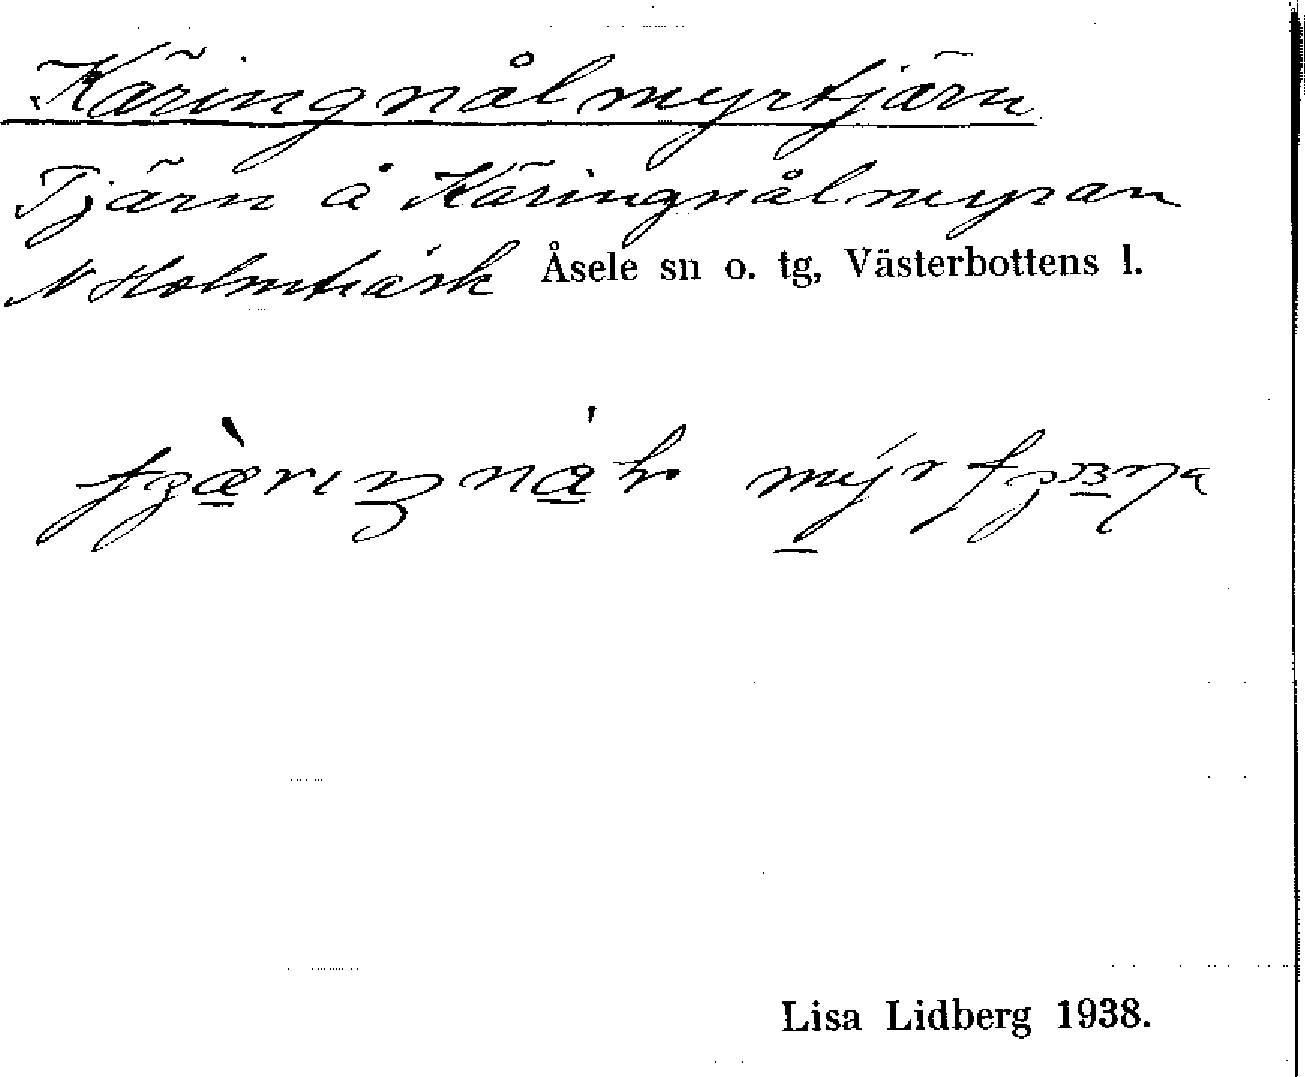 Käringnålmyrtjärn
Tjärn å Käringnålmyran
N Holmträsk Åsele sn o. tg, Västerbottens l.
Lisa Lidberg 1938.